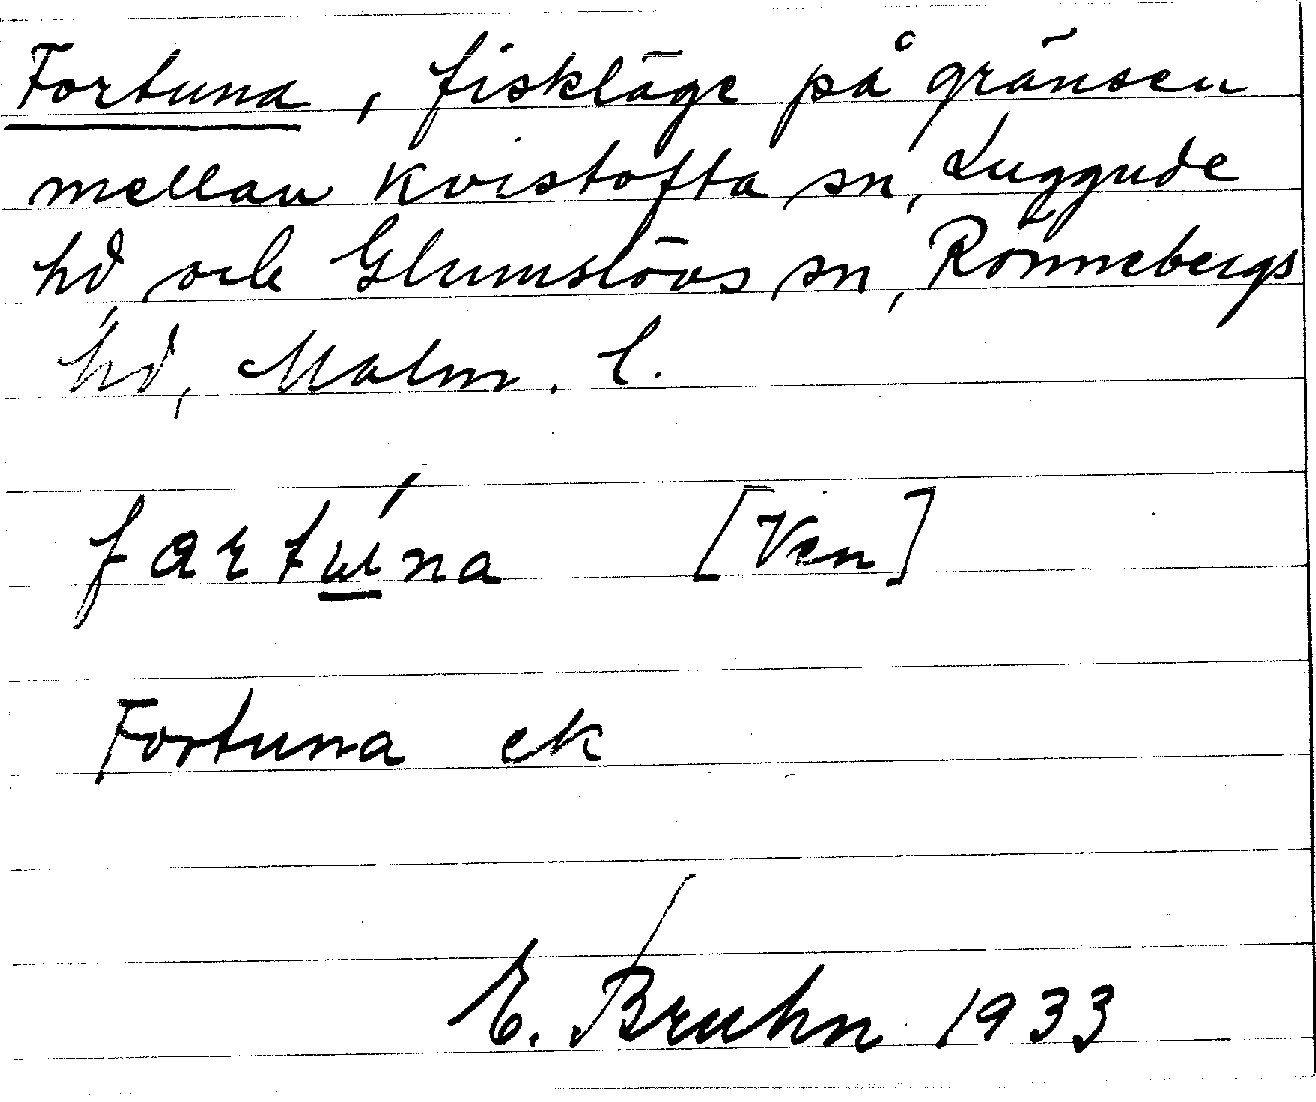 Fortuna, fiskläge på gränsen
mellan Kvistofta sn, Luggude
hd, och Glumslövs sn, Rönnebergs
hd, Malm. l.
[Ven]
Fortuna ek
E. Bruhn 1933